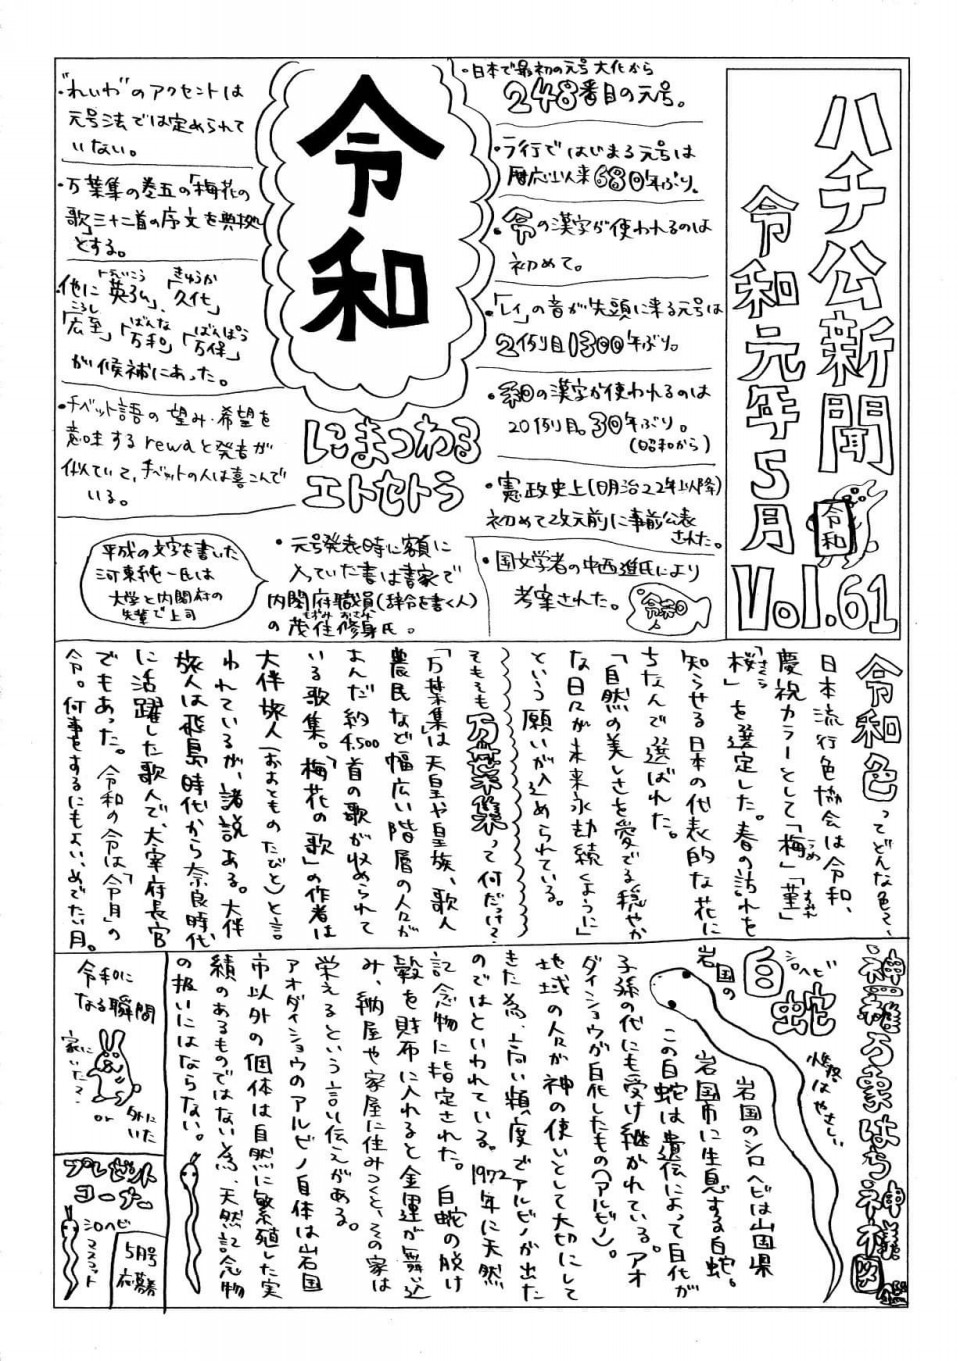 ハチ公新聞
令和元年5月
Vol.61
令和
・日本で最初の元号大化から
248番目の元号。
・ラ行ではじまる元号は
暦応以来680年ぶり。
・令の漢字が使われるのは
初めて。
・「レイ」の音が先頭に来る元号は
2例目1300年ぶり。
・和の漢字が使われるのは
20例目。30年ぶり。
(昭和から)
・憲政史上(明治22年以降)
初めて改元前に事前公表
された。
・国文学者の中西進氏により
考案された。
令和
令和
にまつわる
エトセトラ
・"れいわ"のアクセントは
元号法では定められて
いない。
・万葉集の巻五の「梅花の
歌三十二首の序文を典拠
とする。
・他に「英弘」、「久化」
えいこう
きゅうか
「広至」「万和」「万保」
こうし
ばんな
ばんぽう
が候補にあった。
・チベット語の望み・希望を
意味するrewaと発音が
似ていて、チベットの人は喜こんで
いる。
・元号発表時に額に
入っていた書は書家で
内閣府職員(辞令を書く人)
の茂住修身氏。
平成の文字を書いた
河東純一氏は
大学と内閣府の
先輩で上司
令和色ってどんな色?
日本流行色協会は令和、
慶祝カラーとして「梅」「菫」
うめ
すみれ
「桜」を選定した。春の訪れを
さくら
知らせる日本の代表的な花に
ちなんで選ばれた。
「自然の美しさを愛でる穏やか
な日々が未来永劫続くように」
という願いが込められている。
そもそも万葉集って何だっけ?
「万葉集」は天皇や皇族、歌人
農民など幅広い階層の人々が
よんだ約4,500首の歌が収められて
いる歌集。「梅花の歌」の作者は
大伴旅人(おおとものたびと)と言
われているが、諸説ある。大伴
旅人は飛鳥時代から奈良時代
に活躍した歌人で、大宰府長官
でもあった。令和の令は「令月」の
令。何事をするにもよい、めでたい月。
神羅万象はち神様図鑑
岩国の
白蛇
シロヘビ
性格はやさしい
岩国のシロヘビは山国県
岩国市に生息する白蛇。
この白蛇は遺伝によって白化が
子孫の代にも受け継がれている。アオ
ダイショウが白化したもの(アルビノ)。
地域の人々が神の使いとして大切にして
きた為、高い頻度でアルビノが出た
のではといわれている。1972年に天然
記念物に指定された。白蛇の脱け
殻を財布に入れると金運が舞い込
み、納屋や家屋に住みつくと、その家は
栄えるという言い伝えがある。
アオダイショウのアルビノ自体は岩国
市以外の個体は自然に繁殖した実
績のあるものではない為、天然記念物
の扱いにはならない。
令和に
なる瞬間
家に
いた?
or
外に
いた
プレゼント
コーナー
シロヘビ
マスコット
5月号
応募